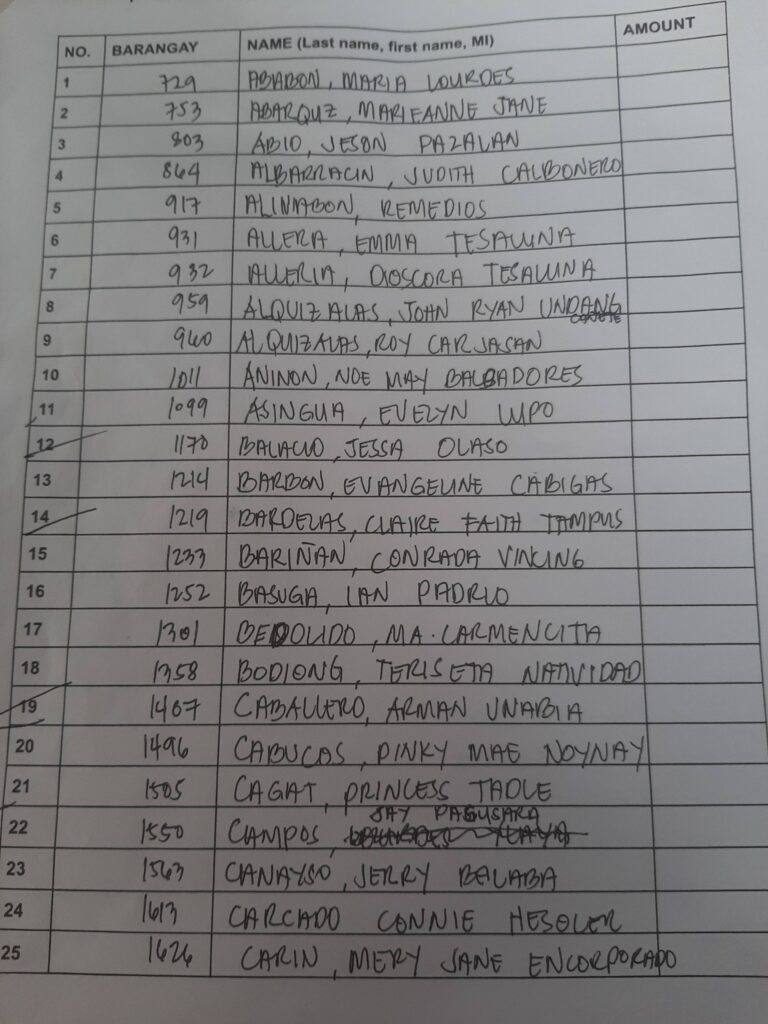 NO. BARANGAY NAME (Last name, first name, MI) AMOUNT
1 729 ABABON, MARIA LOURDES
2 753 ABARQUZ, MARIEANNE JANE
3 803 ABIO, JESON PAZALAN
4 864 ALBARRACIN, JUDITH CALBONERO
5 917 ALINABON, REMEDIOS
6 931 ALLERA, EMMA TESALUNA
7 932 ALLERIA, DIOSCORA TESALUNA
8 959 ALQUIZALAS, JOHN RYAN UNDANG
9 960 ALQUIZALAS, ROY CARJASAN
10 1011 ANINON, NOE MAY BALBADORES
11 1099 ASINGUA, EVELYN LUPO
12 1170 BALACUO, JESSA OLASO
13 1214 BARBON, EVANGELINE CABIGAS
14 1219 BARDELAS, CLAIRE FAITH TAMPUS
15 1233 BARIÑAN, CONRADA
16 1252 BASUGA, IAN
17 1301 MA. CARMENCITA
18 1358 BODIONG, TERISETA NATIVIDAD
19 1467 CABALLERO, ARMAN UNABIA
20 1496 CABUCOS, PINKY MAE NOYNAY
21 1505 CAGAT, PRINCESS TAOLE
JAY PAGUSARA
22 1550 CAMPOS,
23 1563 CANAYSO, JERRY BALABA
24 1613 CARCADO CONNIE HESOLER
25 1626 CARIN, MERY JANE ENCORPORADO